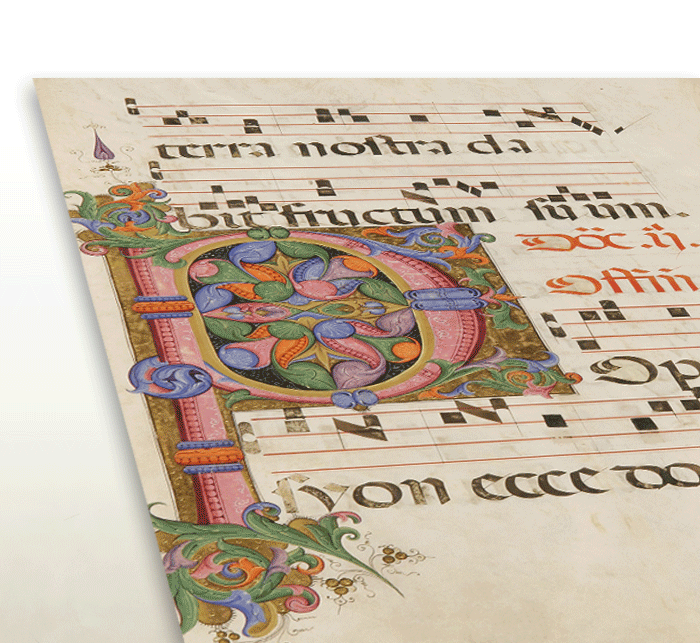 terra nostra da
bit fructum suum.
Dōc. ij
POp
syon ecce do